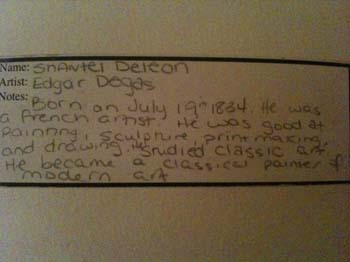 Name: Shantel Deleon
Artist: Edgar Degas
Notes: Born on July 19th 1834. He was
a French artist. He was good at
painting, sculpture, printmaking,
and drawing. He studied classic art.
He became a classical painter of
modern art